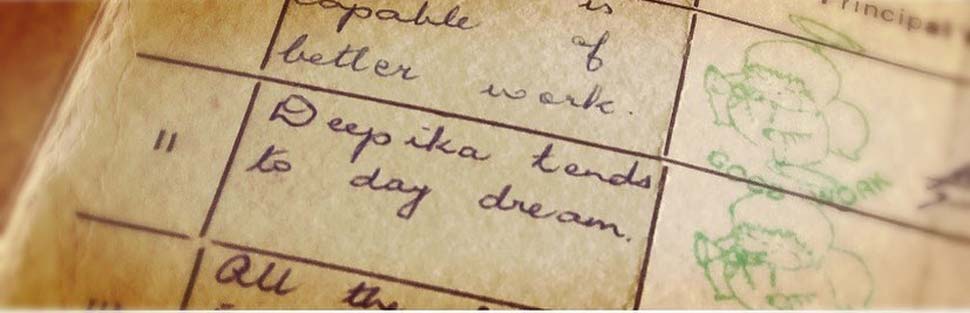 capable is
of
better work.
Principal
II
Deepika tends
to day dream.
GOOD WORK
All the
III